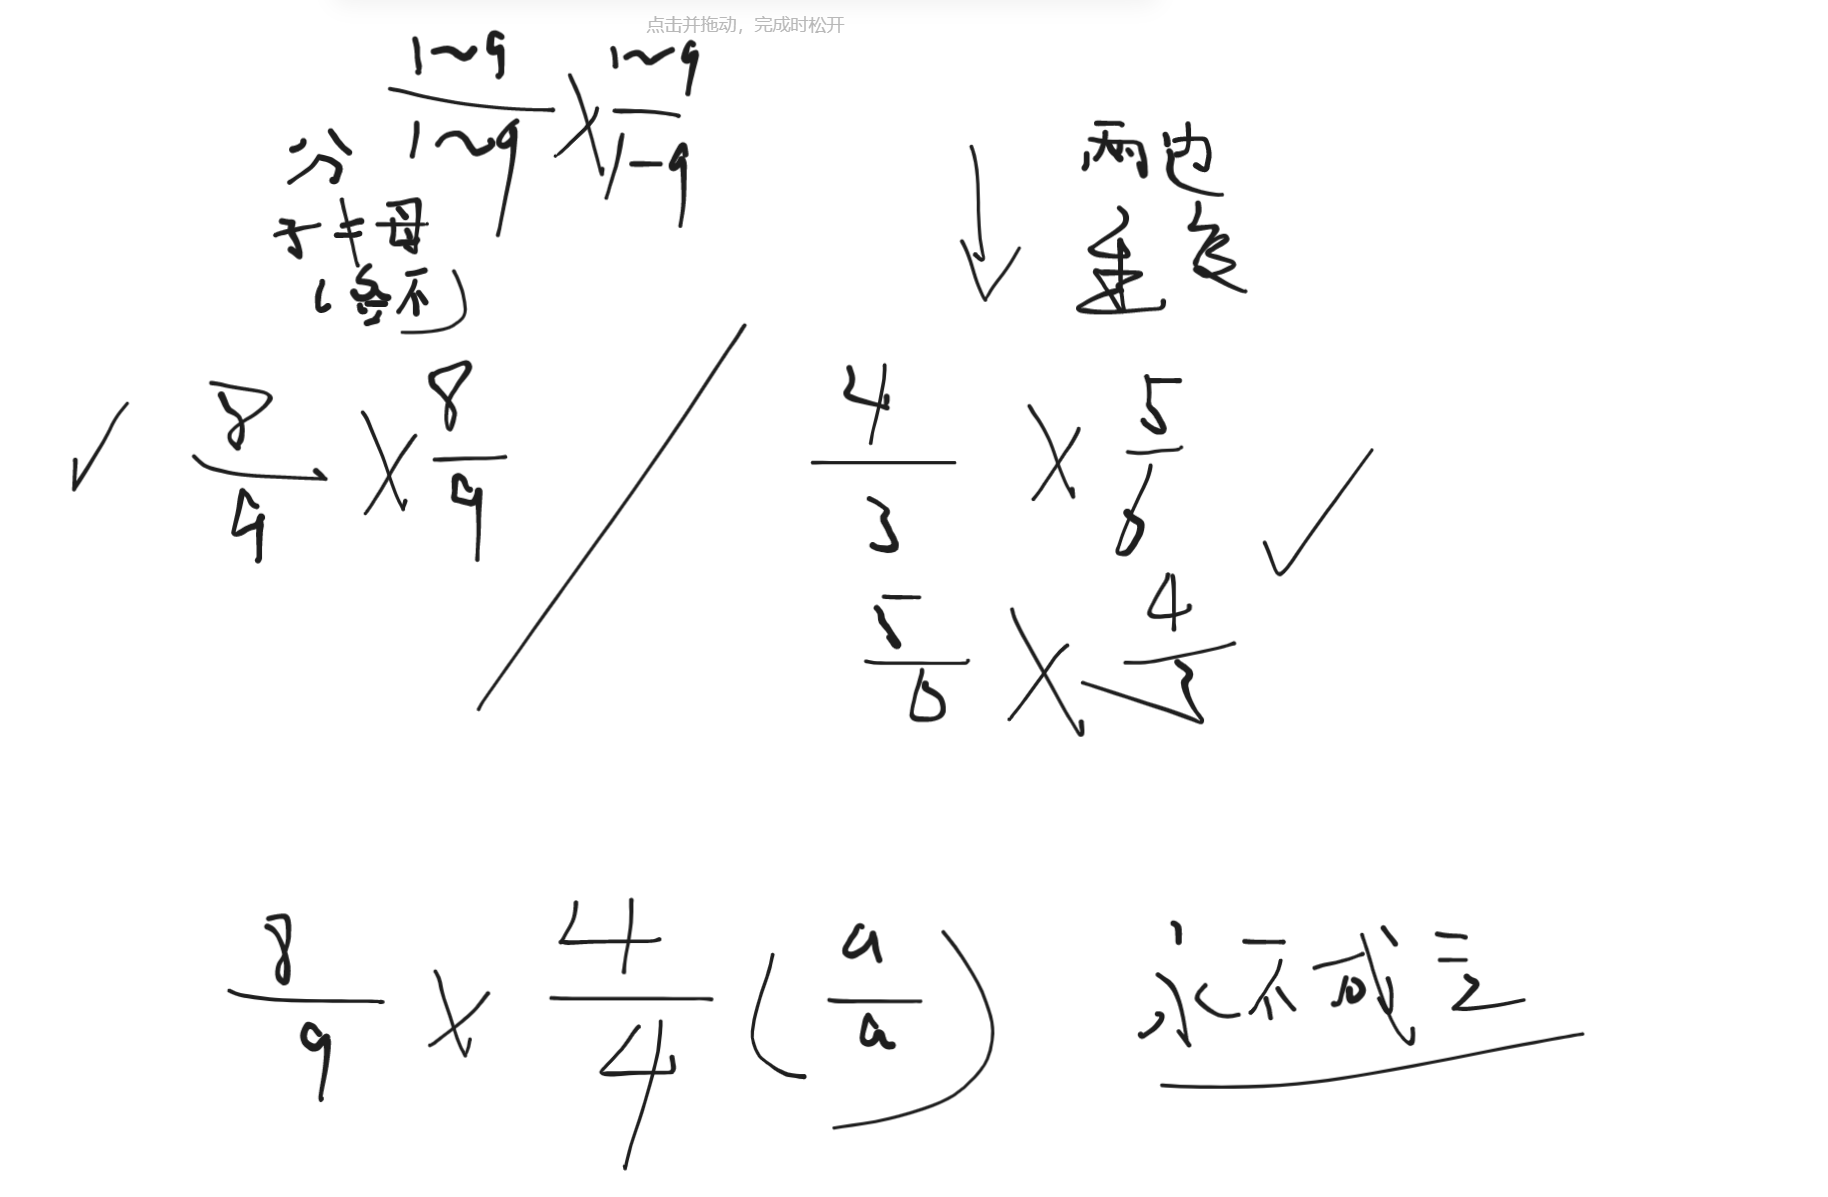 点击并拖动，完成时松开
1~9/1~9 × 1~9/1-9
分子≠母
(
不)
两边
重复
8/9 × 8/9
4/3 × 5/6
5/6 × 4/3
8/9 × 4/4 (a/a) 永不成立